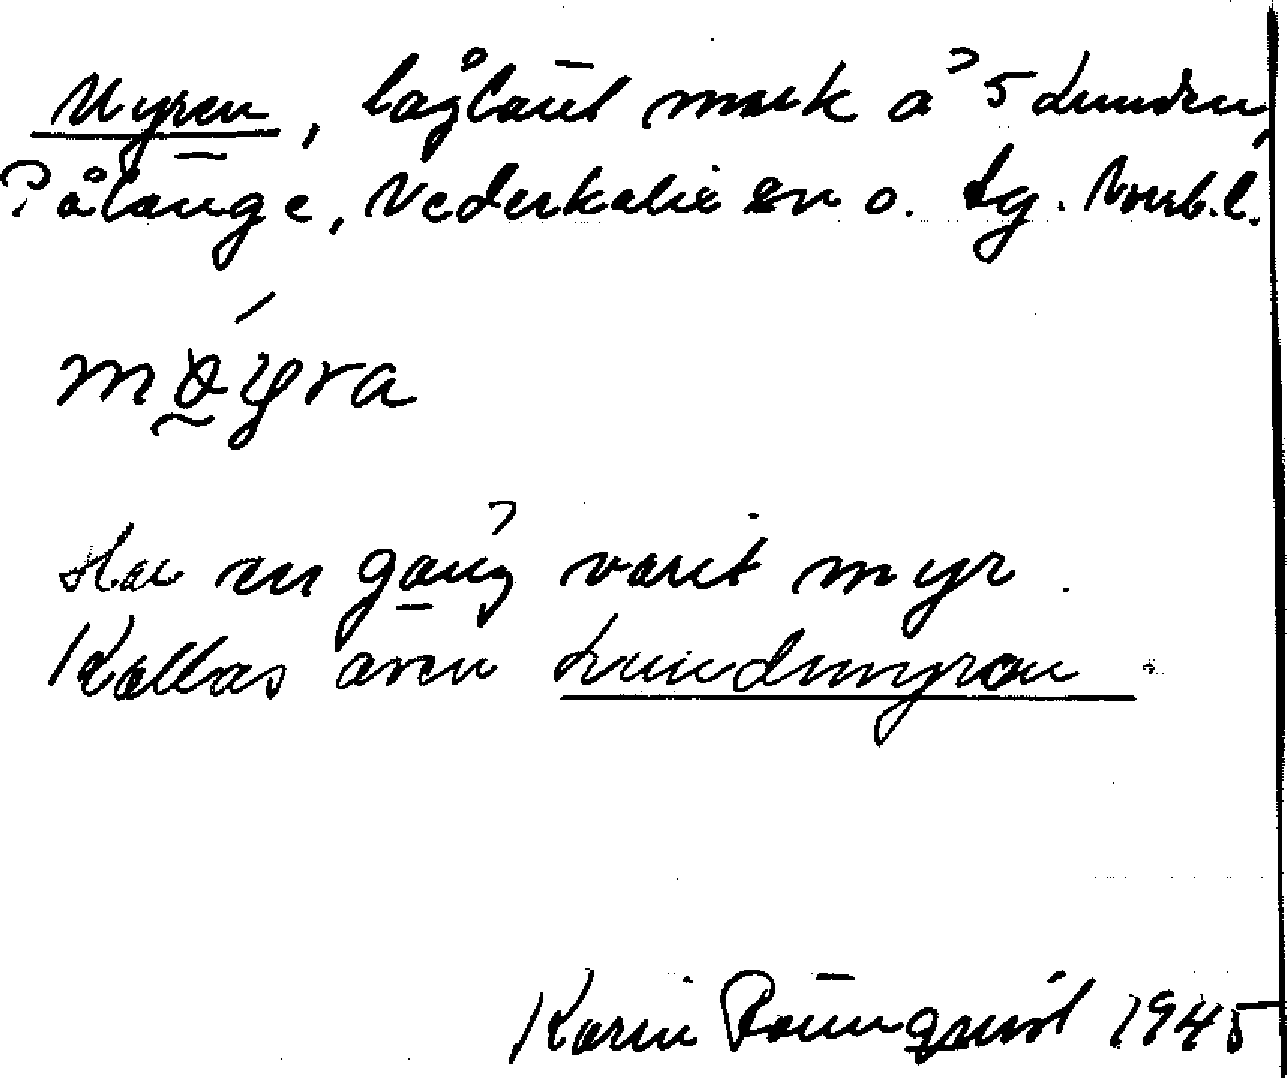 Myren, låglänt mark å 5 Lunden,
Pålänge, Nederkalix sn o. tg. Norrb.l.
møyra
Har en gång varit myr.
Kallas även Lundmyran.
Karin Rönnqvist 1945